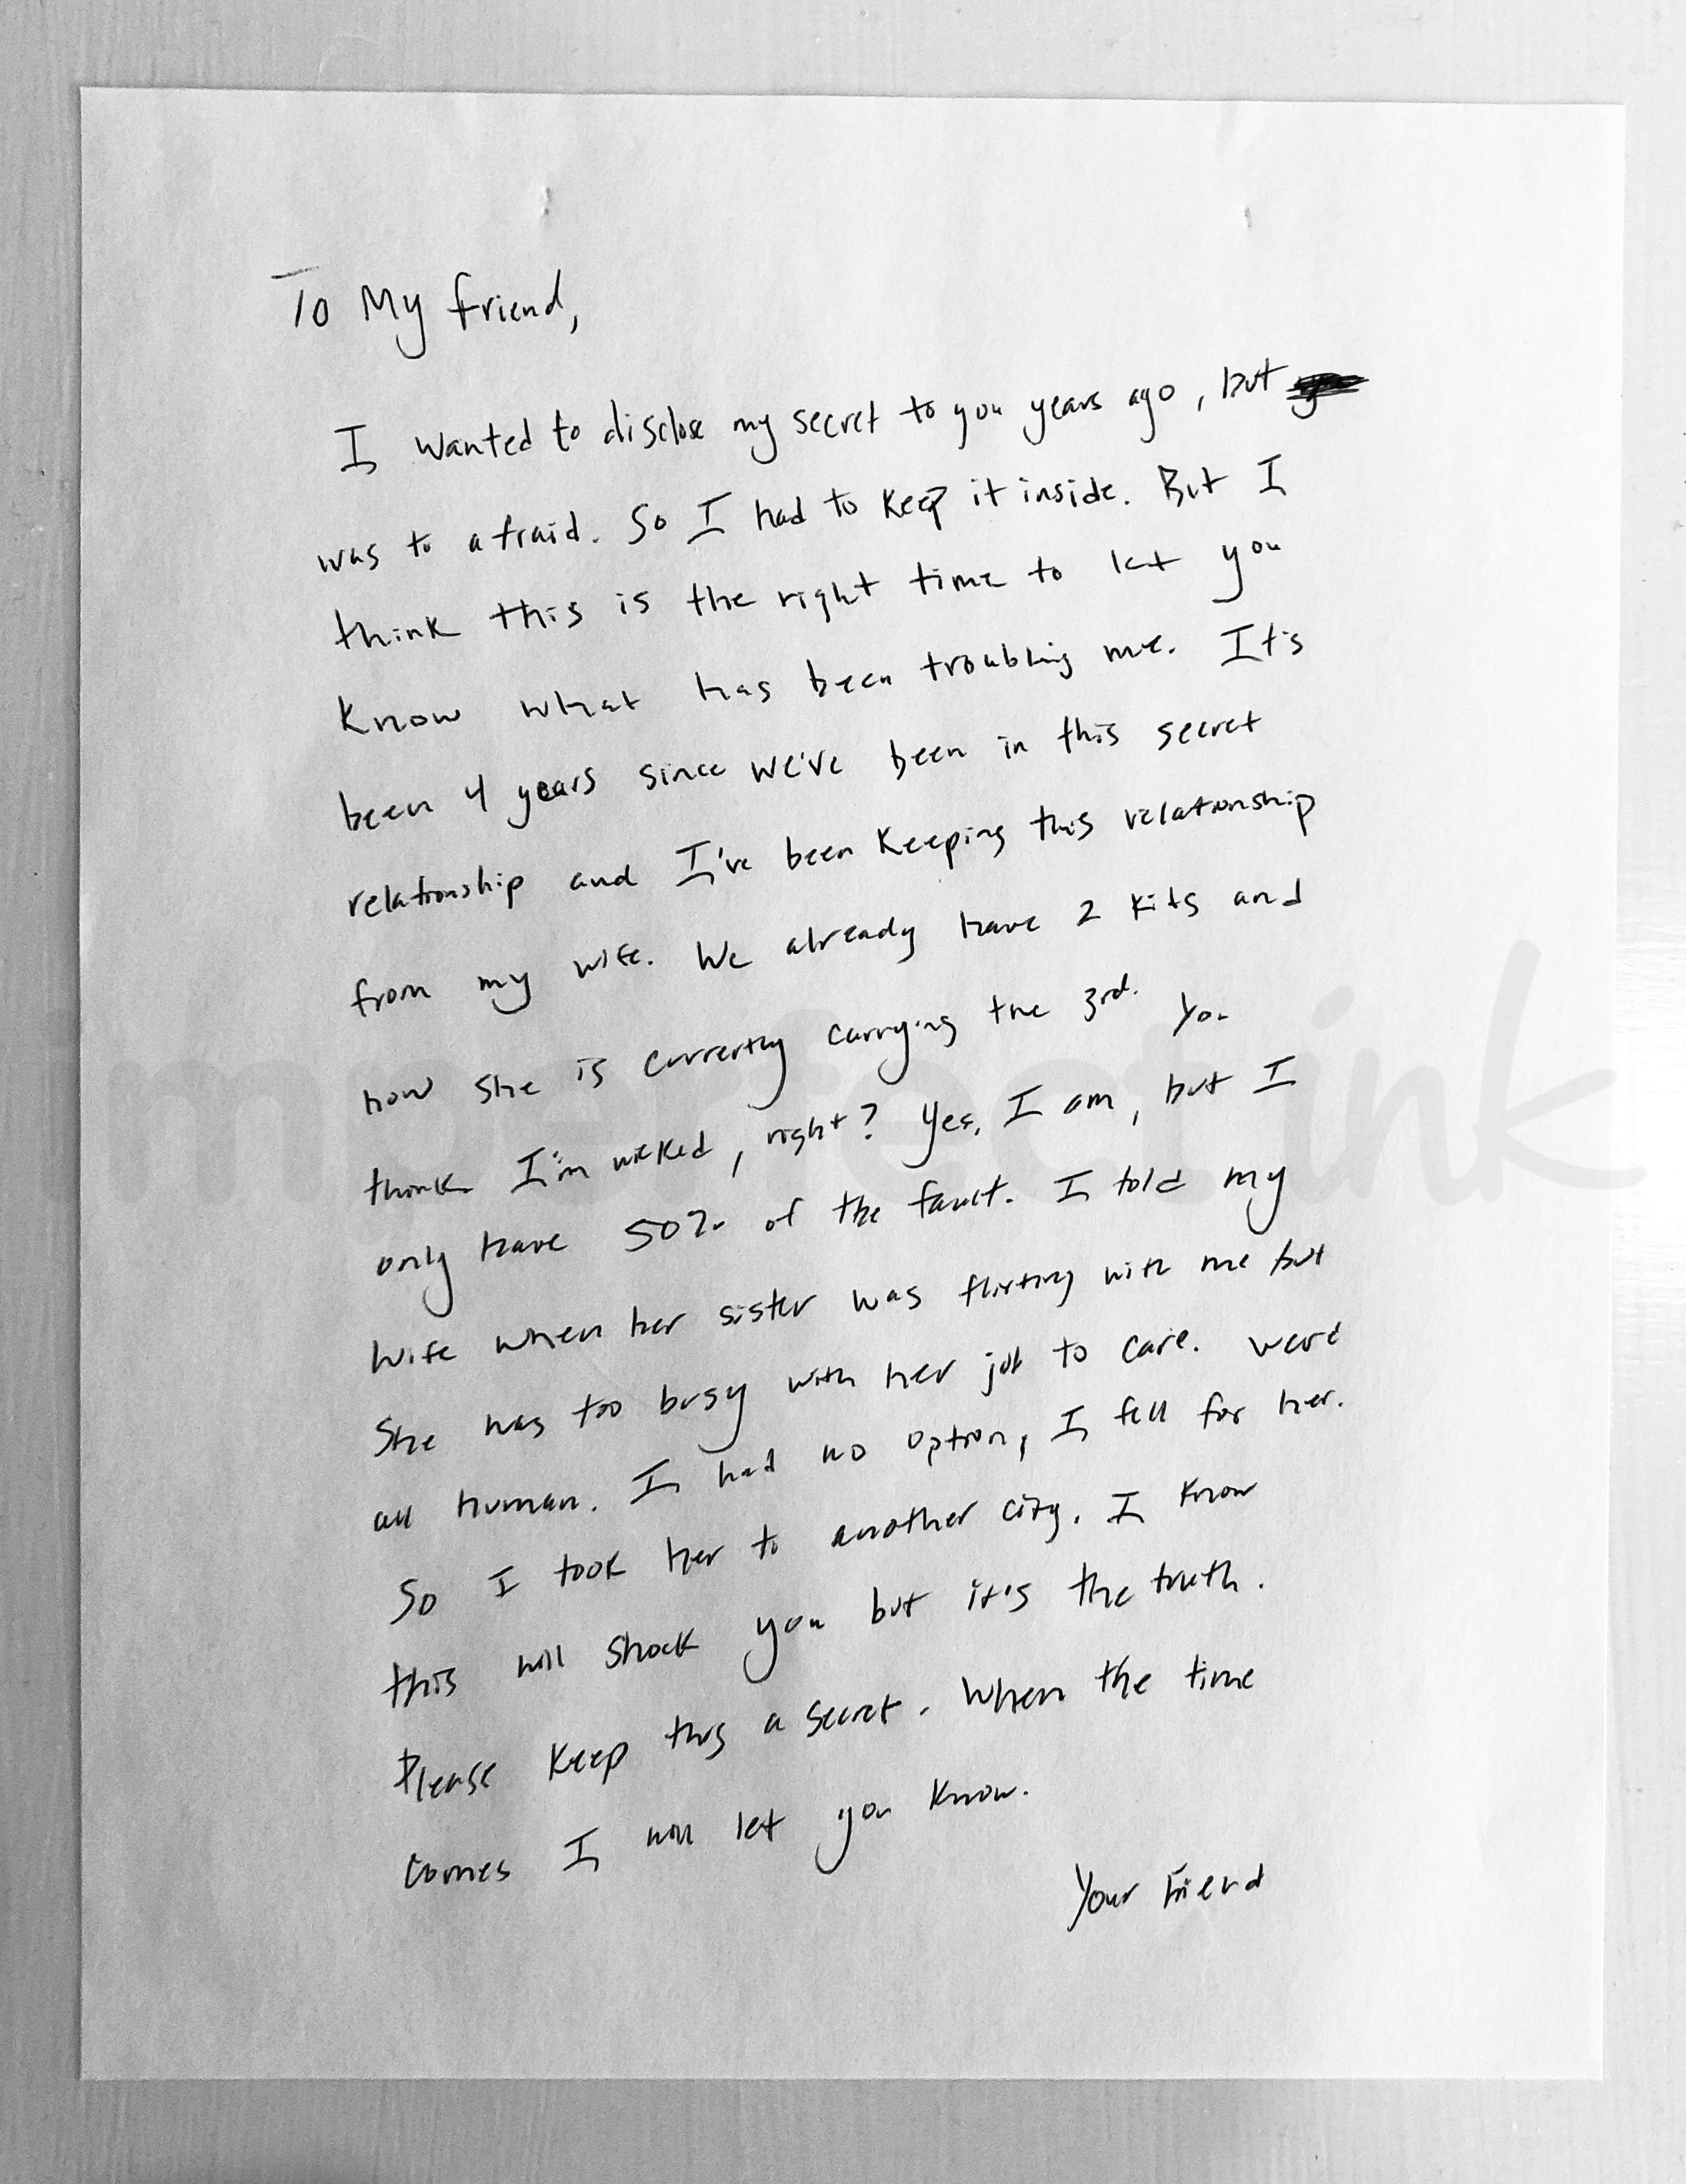 To My friend,
I wanted to disclose my secret to you years ago, but
was to afraid. So I had to keep it inside. But I
think this is the right time to let you
know what has been troubling me. It's
been 4 years since we've been in this secret
relationship and I've been keeping this relationship
from my wife. We already have 2 kits and
now she is currently carrying the 3rd. You
think I'm wicked, right? Yes, I am, but I
only have 50% of the fault. I told my
wife when her sister was flirting with me but
She was too busy with her job to care. were
all human. I had no option, I fell for her.
So I took her to another city. I know
this will shock you but it's the truth.
Please keep this a secret. When the time
comes I will let you know.
Your friend
mperfectink